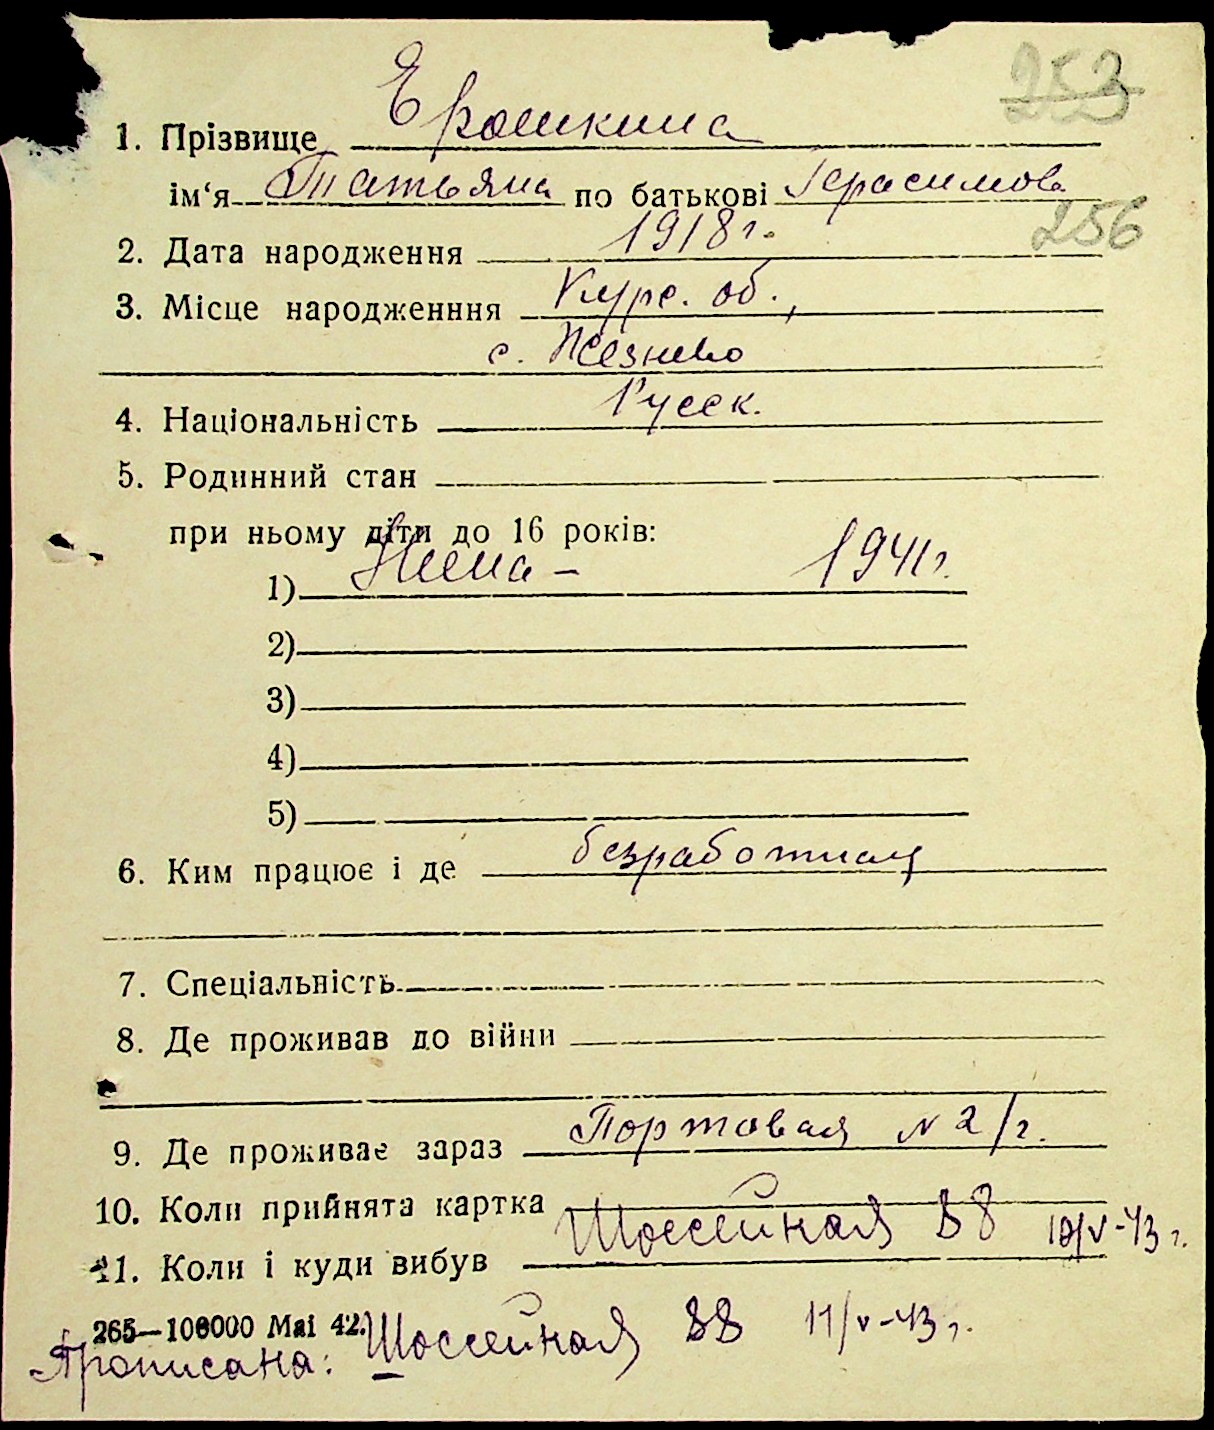 253
1. Прізвище Ерошкина
ім‘я Татьяна по батькові Герасимова
256
2. Дата народження 1918 г.
3. Місце народженння Курс. об.,
с.
4. Національність Русск.
5. Родинний стан
при ньому діти до 16 років:
1) Нина – 1941 г.
2)
3)
4)
5)
6. Ким працює і де безработная
7. Спеціальність
8. Де проживав до війни
9. Де проживає зараз Портовая № 2/г.
10. Коли прийнята картка
Шоссейная 88 10/V-43 г.
11. Коли і куди вибув
265—100000 Маі 42.
Прописана: Шоссейная 88 11/V-43 г.